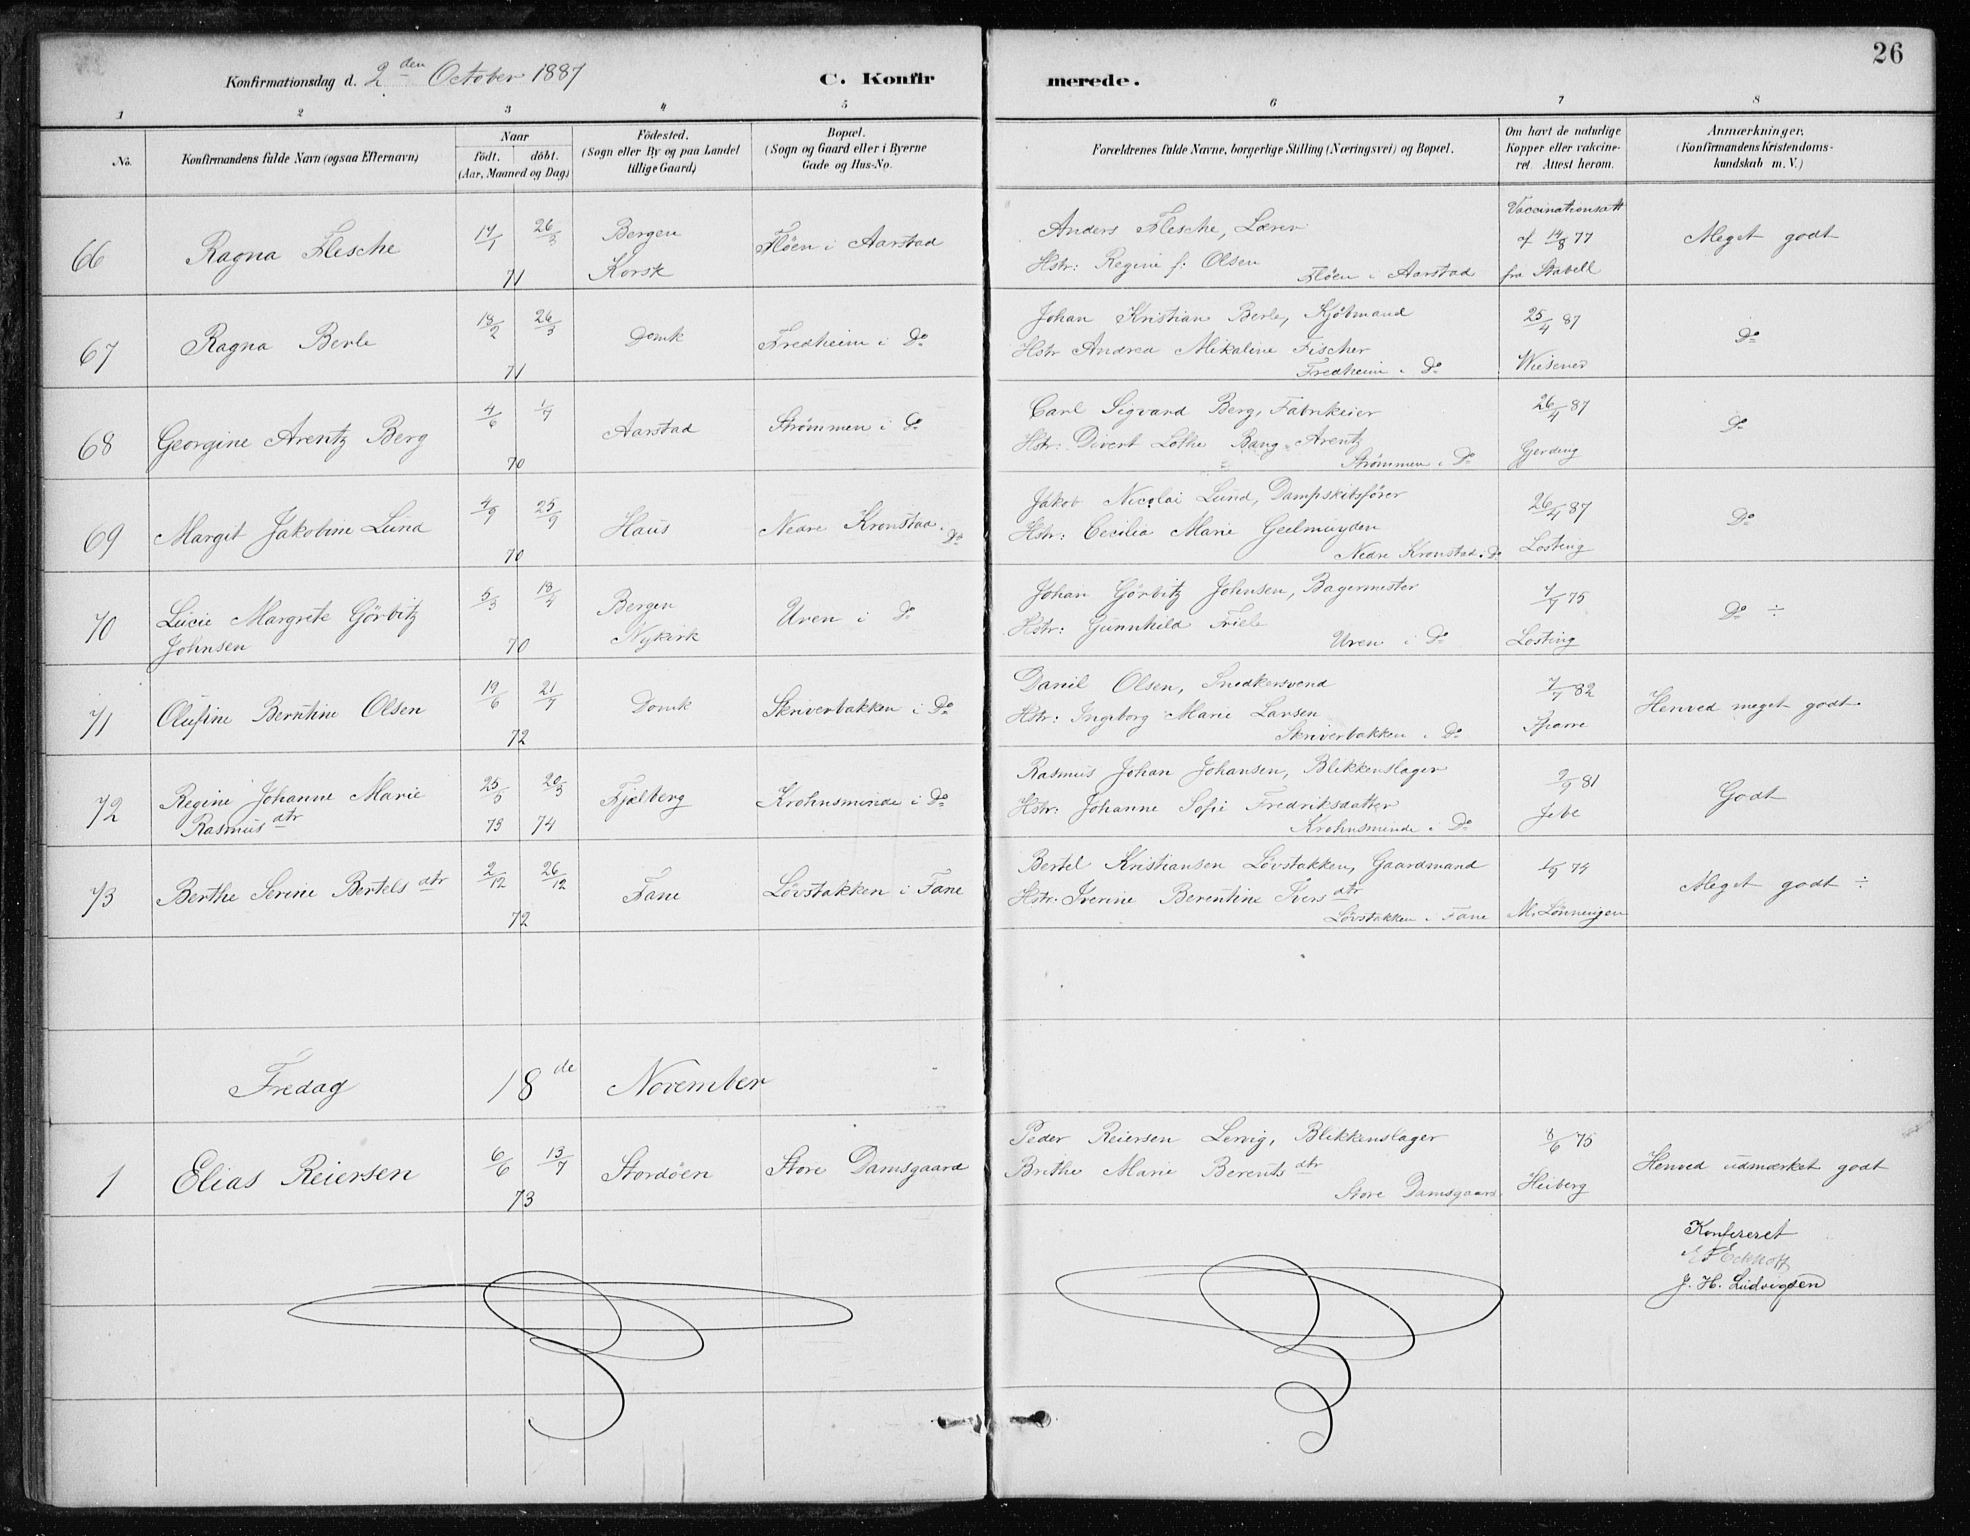 26
Konfirmationsdag d. 2den October 1887
C. Konfirmerede.
1 2 3 4 5 6 7 8
No.
Konfirmandens fulde Navn (ogsaa Efternavn)
Naar
födt. döbt.
(Aar, Maaned og Dag)
Födested.
(Sogn eller By og paa Landet
tillige Gaard)
Bopæl.
(Sogn og Gaard eller i Byerne
Gade og Hus-No.
Forældrenes fulde Navne, borgerlige Stilling (Næringsvei) og Bopæl.
Om havt de naturlige
Kopper eller vakcine-
ret. Attest herom.
Anmærkninger.
(Konfirmandens Kristendoms-
kundskab m. V.)
66 Ragna Flesche 17/1 26/3 71
Bergen
Korsk
Fløen i Aarstad
Anders Flesche, Lærer
Hstr: Regine f. Olsen
Fløen i Aarstad
Vaccinationsatt
af 14/8 77
fra Stabell
Meget godt
67 Ragna Berle 18/2 26/3 71
Domk
Fredheim i Do
Johan Kristian Berle, Kjøbmand
Hstr Andrea Mikaline Fischer
Fredheim i Do
25/4 87
Wiesener
Do
68 Georgine Arentz Berg 4/6 1/7 70
Aarstad
Strømmen i Do
Carl Sigvard Berg, Fabrikeier
Hstr: Divert Lothe Bang Arentz
Strømmen i Do
26/4 87
Gjerding
Do
69 Margit Jakobine Lund 4/9 25/9 70
Haus
Nedre Kronstad i Do
Jakob Nicolai Lund, Dampskibsfører
Hstr: Cecilia Marie Geelmuyden
Nedre Kronstad i Do
26/4 87
Losting
Do
70 Lucie Margrete Görbitz
Johnsen
5/3 18/4 70
Bergen
Nykirk
Uren i Do
Johan Görbitz Johnsen, Bagermester
Hstr: Gunnhild Friele
Uren i Do
7/9 75
Losting
Do ÷
71 Olufine Berntine Olsen 19/6 21/7 72
Domk
Skriverbakken i Do
Danil Olsen, Snedkersvend
Hstr: Ingeborg Marie Larsen
Skriverbakken i Do
7/7 82
Sparre
Henved meget godt
72 Regine Johanne Marie
Rasmusdtr
25/5 73 20/3 74
Fjelberg
Krohnsminde i Do
Rasmus Johan Johansen, Blikkenslager
Hstr: Johanne Sofie Fredriksdatter
Krohnsminde i Do
2/9 81
Jebe
Godt
73 Berthe Serine Bertelsdtr 2/12 26/12 72
Fane
Løvstakken i Fane
Bertel Kristiansen Løvstakken, Gaardmand
Hstr: Iverine Berentine Iversdtr
Løvstakken i Fane
1/9 74
M. Lønningen
Meget godt ÷
Fredag 18de November
1 Elias Reiersen 6/6 13/7 73
Stordöen
Store Damsgaard
Peder Reiersen Lervig, Blikkenslager
Brithe Marie Berentsdtr
Store Damsgaard
8/6 75
Heiberg
Henved udmærket godt
Konfereret
E F Eckhoff
J. H. Ludvigsen